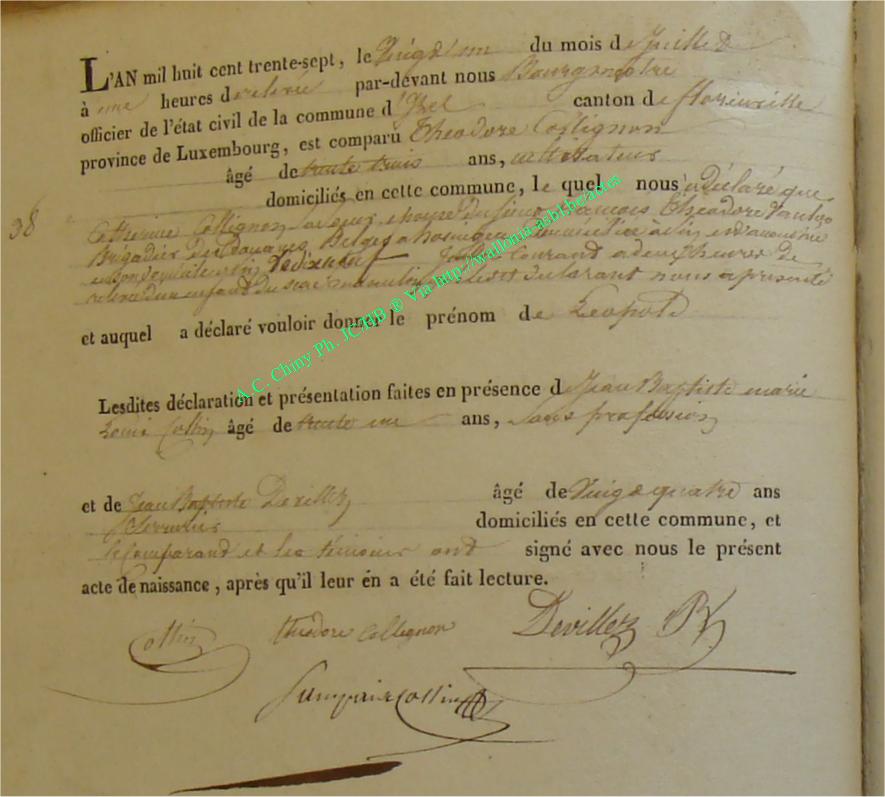 L'AN mil huit cent trente-sept, le vingt un du mois de Juillet
à une heures de relevée par-devant nous Bourgmestre
officier de l'état civil de la commune d'Izel canton de florenville
province de Luxembourg, est comparu Theodore Collignon
âgé de trente trois ans, cultivateur
domiciliés en cette commune, le quel nous a déclaré que
38
Catherine Collignon sa sœur epouse du sieur francois Theodore
Brigadier des Douanes Belges
courant a deux heures de
relevée d'un enfant du sexe masculin declarant nous a presenté
et auquel a déclaré vouloir donner le prénom de Leopold
Lesdites déclaration et présentation faites en présence de Jean Baptiste marie
Louis Collin âgé de trente un ans, sans profession
et de Jean Baptiste Devillez âgé de vingt quatre ans
Serrurier domiciliés en cette commune, et
le Comparant et les témoins ont signé avec nous le présent
acte de naissance, après qu'il leur en a été fait lecture.
Collin theodore Collignon Devillez
Collin
A.C. Chiny Ph. JC HB ® Via http://wallonia.asbl.be/actes